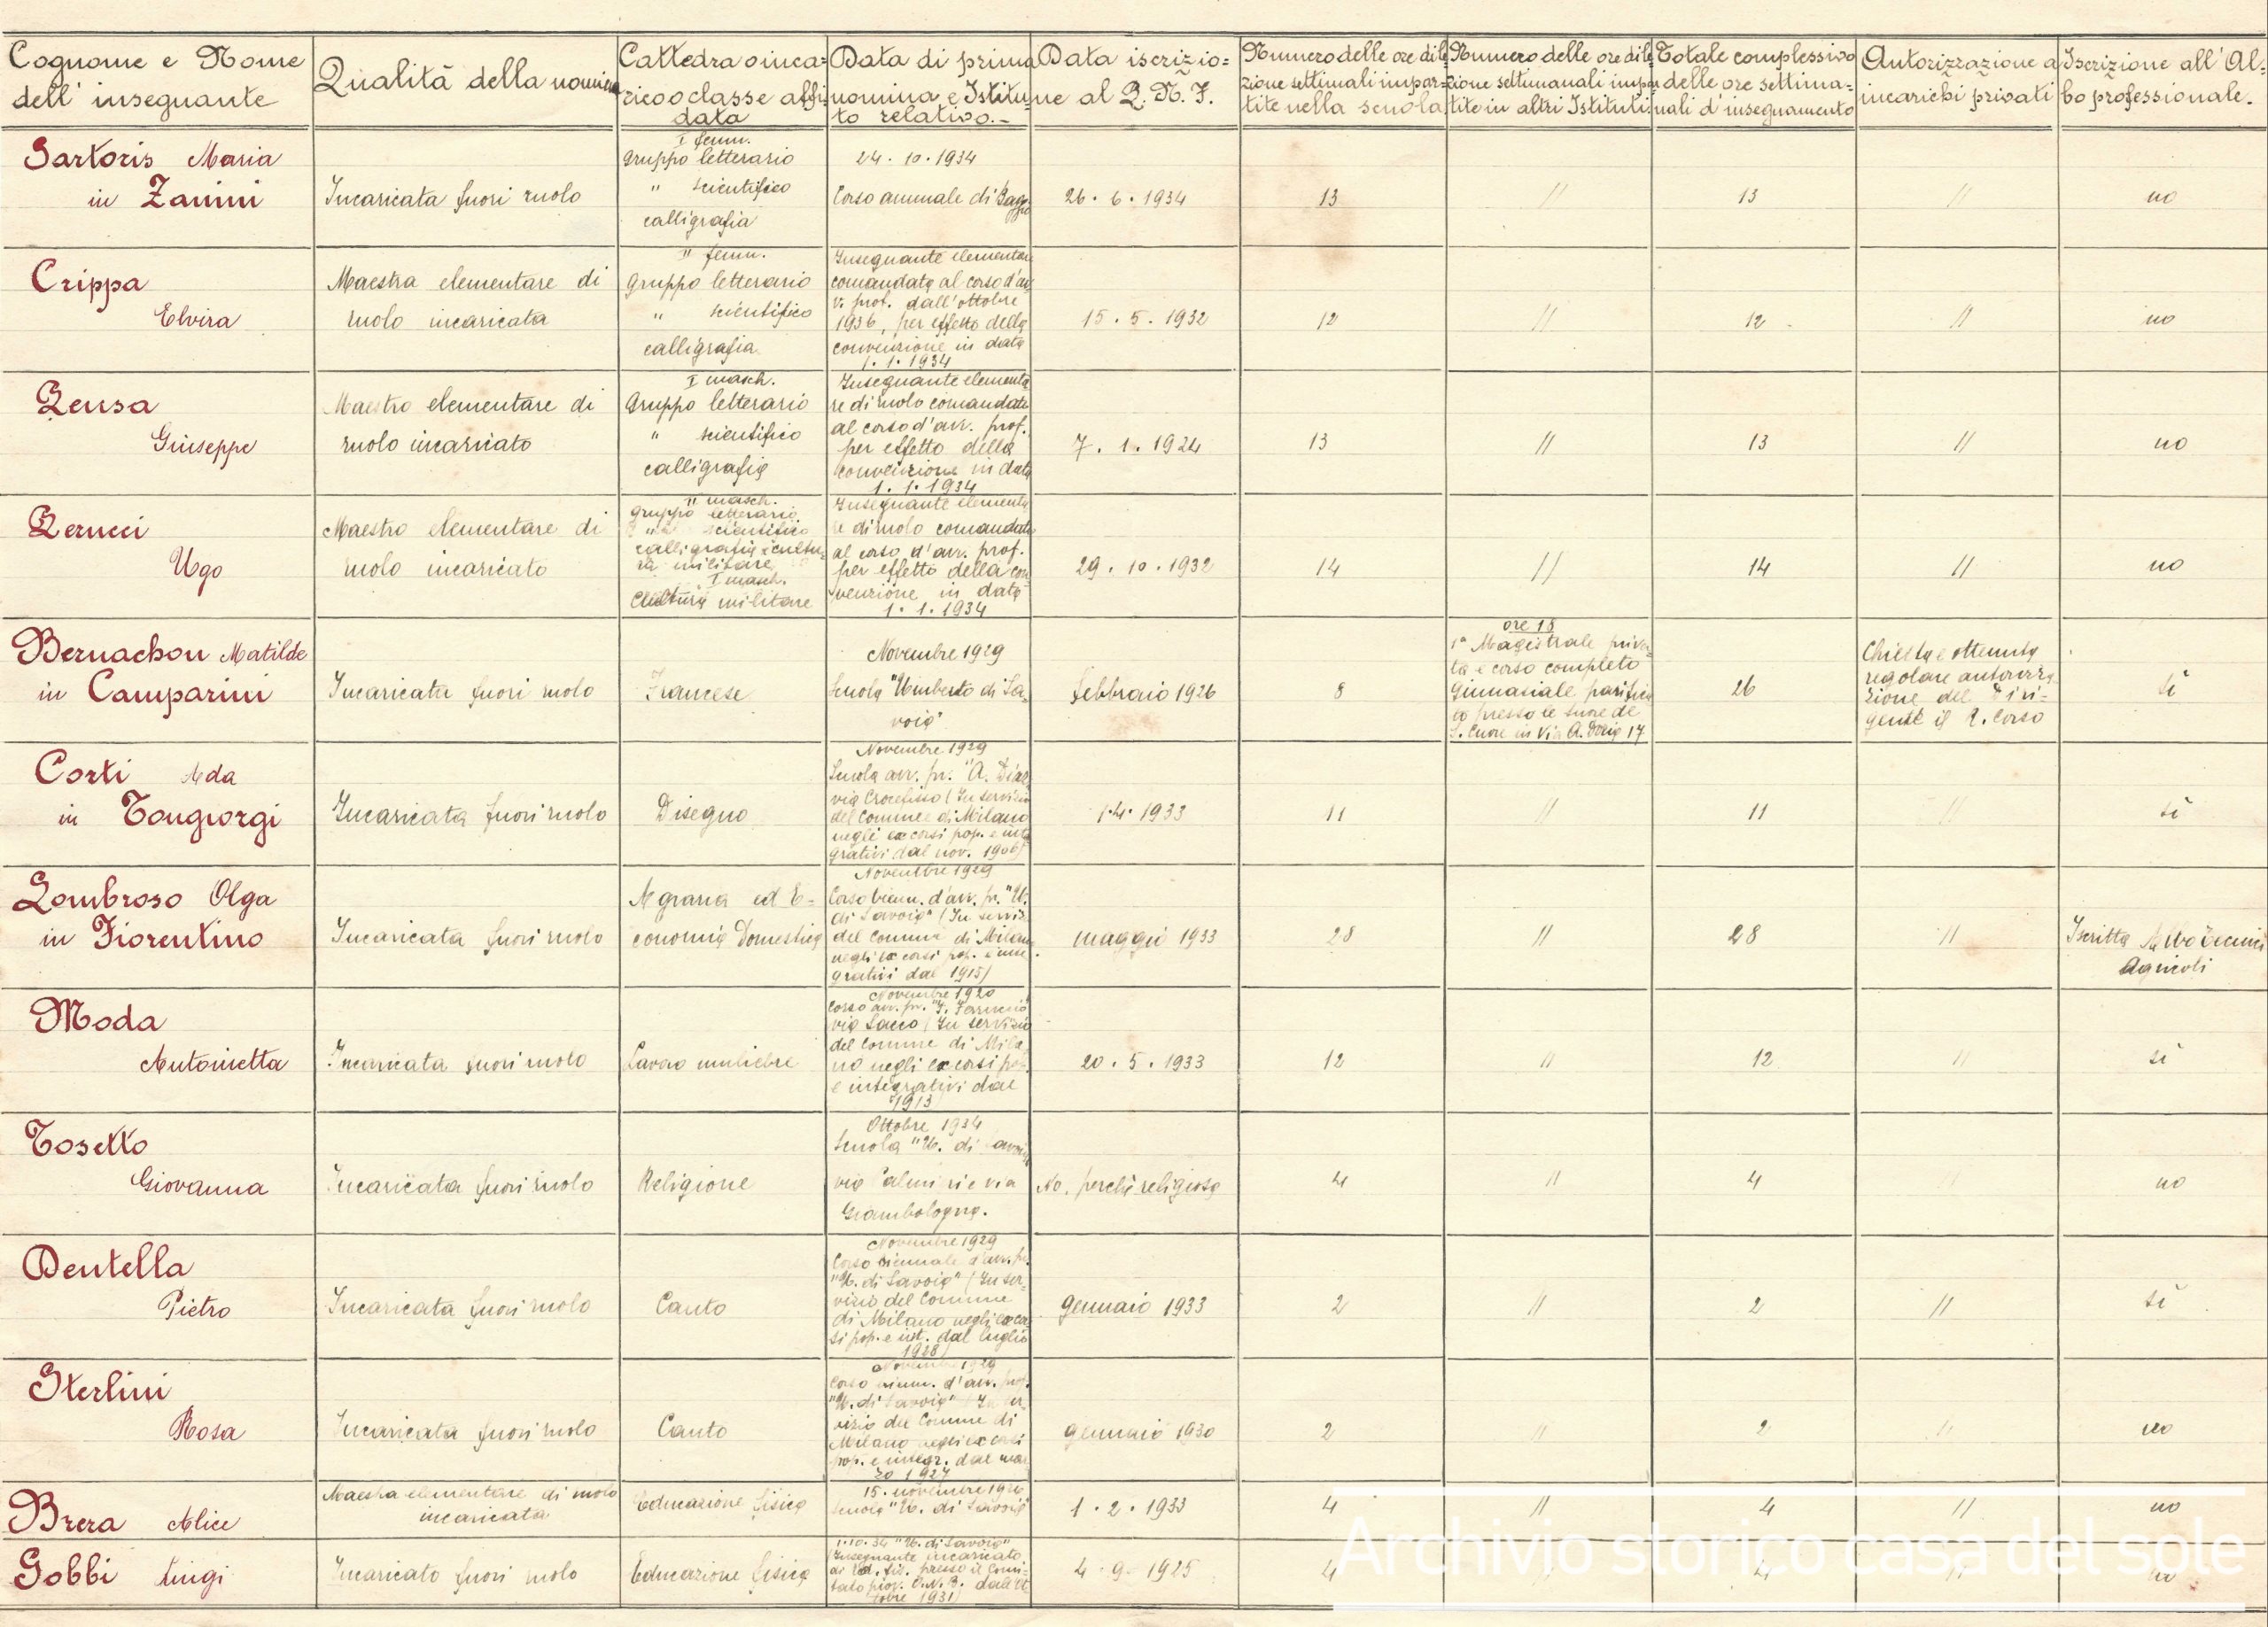 Cognome e Nome
dell' insegnante
Qualità della nomina
Cattedra o inca-
rico o classe affi-
data
Data di prima
nomina e Istitu-
to relativo.-
Data iscrizio-
ne al P. N. F.
Numero delle ore di le-
zione settimali impar-
tite nella scuola
Numero delle ore di le-
zione settimanali impar-
tite in altri Istituti
Totale complessivo
delle ore settima-
nali d'insegnamento
Autorizzazione a
incarichi privati
Iscrizione all' Al-
bo professionale.
Sartoris Maria
in Zanini
Incaricata fuori ruolo
I femm.
Gruppo letterario
" scientifico
calligrafia
24. 10. 1934
Corso annuale di Baggio
26. 6. 1934
13
//
13
//
no
Crippa
Elvira
Maestra elementare di
ruolo incaricata
II femm.
Gruppo letterario
" scientifico
calligrafia
Insegnante elementare
comandata al corso d'av
v. prof. dall'ottobre
1936, per effetto della
convenzione in data
1. 1. 1934
15. 5. 1932
12
//
12
//
no
Pensa
Giuseppe
Maestro elementare di
ruolo incaricato
I masch.
Gruppo letterario
" scientifico
calligrafia
Insegnante elementa
re di ruolo comandato
al corso d'avv. prof.
per effetto della
convenzione in data
1. 1. 1934
7. 1. 1924
13
//
13
//
no
Perucci
Ugo
Maestro elementare di
ruolo incaricato
II masch.
Gruppo letterario
" scientifico
calligrafia e cultu-
ra militare
I masch.
Cultura militare
Insegnante elementa
re di ruolo comandato
al corso d'avv. prof.
per effetto della con
venzione in data
1. 1. 1934
29. 10. 1932
14
//
14
//
no
Bernachon Matilde
in Camparini
Incaricata fuori ruolo
Francese
Novembre 1929
Scuola "Umberto di Sa-
voia"
febbraio 1926
8
ore 18
1ª Magistrale priva-
ta e corso completo
Ginnasiale parifica
to presso le suore del
S. Cuore in Via A. Doria 17
26
Chiesta e ottenuta
regolare autorizza
zione del Diri-
gente il R. Corso
sì
Corti Ada
in Tongiorgi
Incaricata fuori ruolo
Disegno
Novembre 1929
Scuola avv. pr. "A. Diaz
via Crocefisso (In servizio
del Comune di Milano
negli ex corsi pop. e inte
grativi dal nov. 1906)
1.4. 1933
11
//
11
//
sì
Lombroso Olga
in Fiorentino
Incaricata fuori ruolo
Agraria ed E-
conomia Domestica
Novembre 1929
Corso bienn. d'avv. pr. "U.
di Savoia" (In serviz.
del Comune di Milano
negli ex corsi pop. e inte
grativi dal 1915)
maggio 1933
28
//
28
//
Iscritta Albo Tecnici
Agricoli
Moda
Antonietta
Incaricata fuori ruolo
Lavoro muliebre
Novembre 1920
Corso avv. pr. "F. Ferruccio"
via Sacco (In servizio
del Comune di Mila
no negli ex corsi pop.
e integrativi dal
1913
20. 5. 1933
12
//
12
//
sì
Tosetto
Giovanna
Incaricata fuori ruolo
Religione
Ottobre 1934
Scuola "U. di Savoia
via Palmieri e via
Giambologna.
No, perchè religiosa
4
//
4
//
no
Dentella
Pietro
Incaricata fuori ruolo
Canto
Novembre 1929
Corso biennale d'avv. pr.
"U. di Savoia" (In ser-
vizio del Comune
di Milano negli ex cor
si pop. e int. dal luglio
1928)
gennaio 1933
2
//
2
//
sì
Sterlini
Rosa
Incaricata fuori ruolo
Canto
Novembre 1929
Corso bienn. d'avv. prof.
"U. di Savoia" (In ser
vizio del Comune di
Milano negli ex corsi
pop. e integr. dal mar
zo 1927
gennaio 1930
2
//
2
//
no
Brera Alice
Maestra elementare di ruolo
incaricata
Educazione fisica
15. novembre 1926
Scuola "U. di Savoia"
1. 2. 1933
4
//
4
//
no
Gobbi Luigi
Incaricato fuori ruolo
Educazione fisica
1.10.34 "U. di Savoia"
(Insegnante incaricato
di Ed. fis. presso il Comi-
tato prov. O.N.B. dall'ot
tobre 1931)
4. 9. 1925
4
//
4
//
no
Archivio storico casa del sole